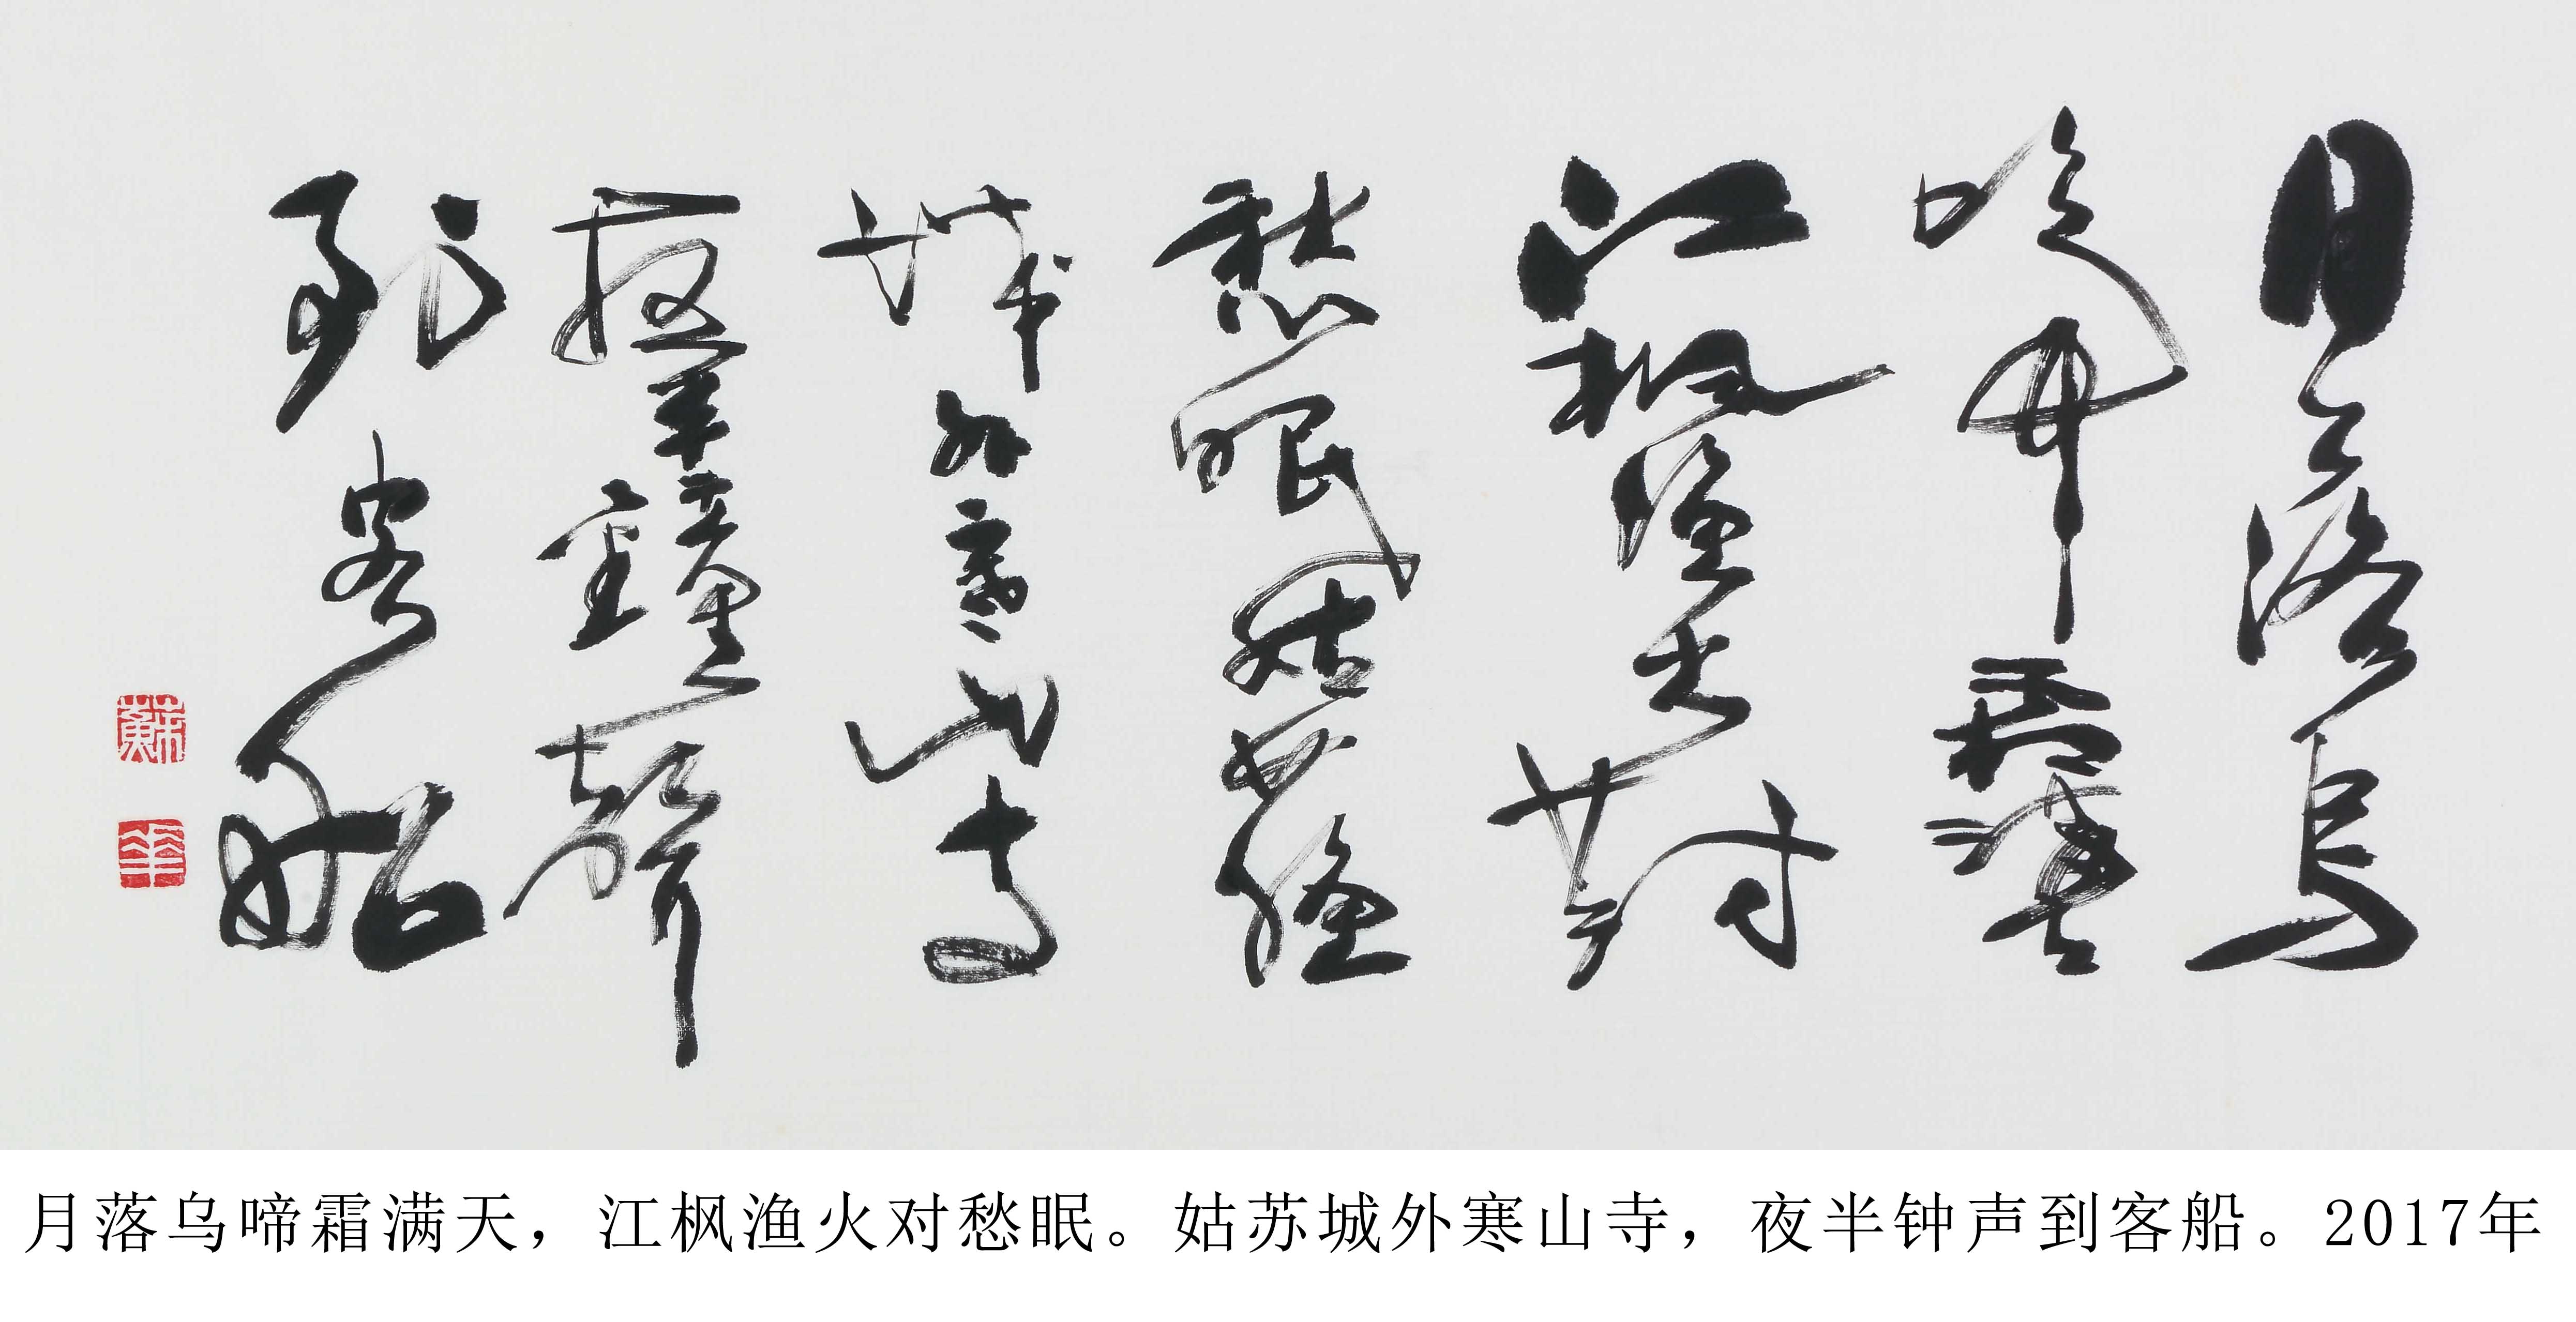 月落烏
啼霜滿天
江楓漁火對
愁眠姑蘇
城外寒山寺
夜半鐘聲
到客船
蘇
華
月落乌啼霜满天，江枫渔火对愁眠。姑苏城外寒山寺，夜半钟声到客船。2017年